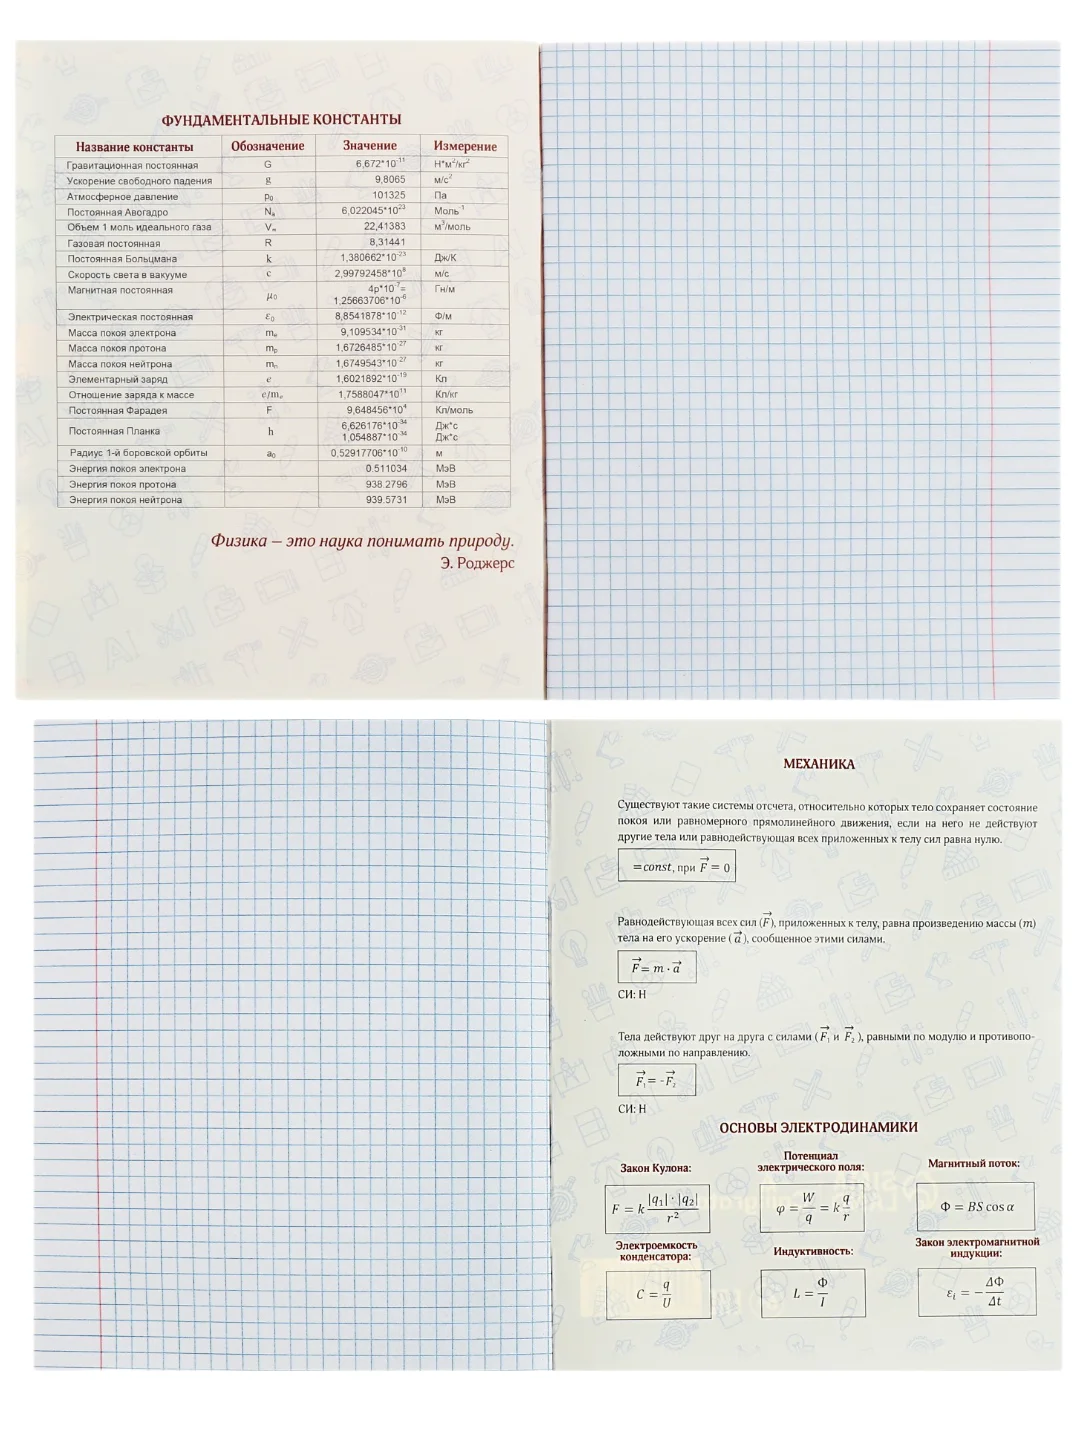 ФУНДАМЕНТАЛЬНЫЕ КОНСТАНТЫ
Название константы Обозначение Значение Измерение
Гравитационная постоянная G 6,672*10⁻¹¹ Н*м²/кг²
Ускорение свободного падения g 9,8065 м/с²
Атмосферное давление p₀ 101325 Па
Постоянная Авогадро Nₐ 6,022045*10²³ Моль⁻¹
Объем 1 моль идеального газа Vₘ 22,41383 м³/моль
Газовая постоянная R 8,31441
Постоянная Больцмана k 1,380662*10⁻²³ Дж/К
Скорость света в вакууме c 2,99792458*10⁸ м/с
Магнитная постоянная μ₀ 4p*10⁻⁷= Гн/м
1,25663706*10⁻⁶
Электрическая постоянная ε₀ 8,8541878*10⁻¹² Ф/м
Масса покоя электрона mₑ 9,109534*10⁻³¹ кг
Масса покоя протона mₚ 1,6726485*10⁻²⁷ кг
Масса покоя нейтрона mₙ 1,6749543*10⁻²⁷ кг
Элементарный заряд e 1,6021892*10⁻¹⁹ Кл
Отношение заряда к массе e/mₑ 1,7588047*10¹¹ Кл/кг
Постоянная Фарадея F 9,648456*10⁴ Кл/моль
Постоянная Планка h 6,626176*10⁻³⁴ Дж*с
1,054887*10⁻³⁴ Дж*с
Радиус 1-й боровской орбиты a₀ 0,52917706*10⁻¹⁰ м
Энергия покоя электрона 0.511034 МэВ
Энергия покоя протона 938.2796 МэВ
Энергия покоя нейтрона 939.5731 МэВ
Физика – это наука понимать природу.
Э. Роджерс
МЕХАНИКА
Существуют такие системы отсчета, относительно которых тело сохраняет состояние
покоя или равномерного прямолинейного движения, если на него не действуют
другие тела или равнодействующая всех приложенных к телу сил равна нулю.
=const, при F⃗ = 0
Равнодействующая всех сил (F⃗), приложенных к телу, равна произведению массы (m)
тела на его ускорение (a⃗), сообщенное этими силами.
F⃗ = m · a⃗
СИ: Н
Тела действуют друг на друга с силами (F⃗₁ и F⃗₂), равными по модулю и противопо-
ложными по направлению.
F⃗₁ = -F⃗₂
СИ: Н
ОСНОВЫ ЭЛЕКТРОДИНАМИКИ
Закон Кулона:
F = k |q₁| · |q₂| / r²
Потенциал
электрического поля:
φ = W/q = k q/r
Магнитный поток:
Ф = BS cos α
Электроемкость
конденсатора:
C = q/U
Индуктивность:
L = Ф/I
Закон электромагнитной
индукции:
εᵢ = − ΔФ/Δt